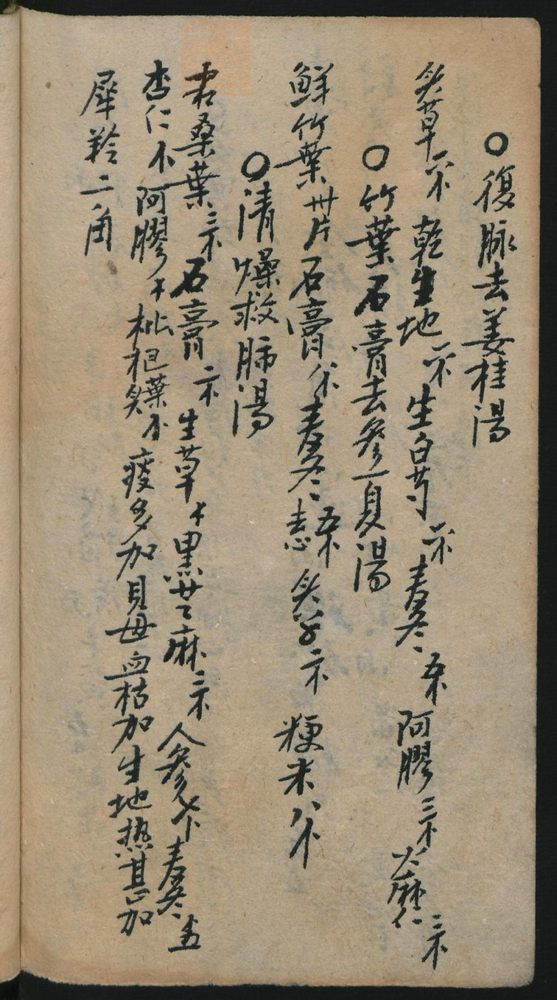 ○復脉去姜桂湯
炙草六錢 乾生地六錢 生白芍六錢 麦冬五錢 阿膠三錢 火麻仁三錢
○竹葉石膏去參夏湯
鮮竹葉卅片 石膏八錢 麦冬五錢 炙草二錢 粳米八錢
○清燥救肺湯
霜桑葉三錢 石膏二錢 生草 黑芝麻二錢 人參七分 麦冬
杏仁 阿膠 枇杷葉炙 痰多加貝母 血枯加生地 熱甚加
犀羚二角